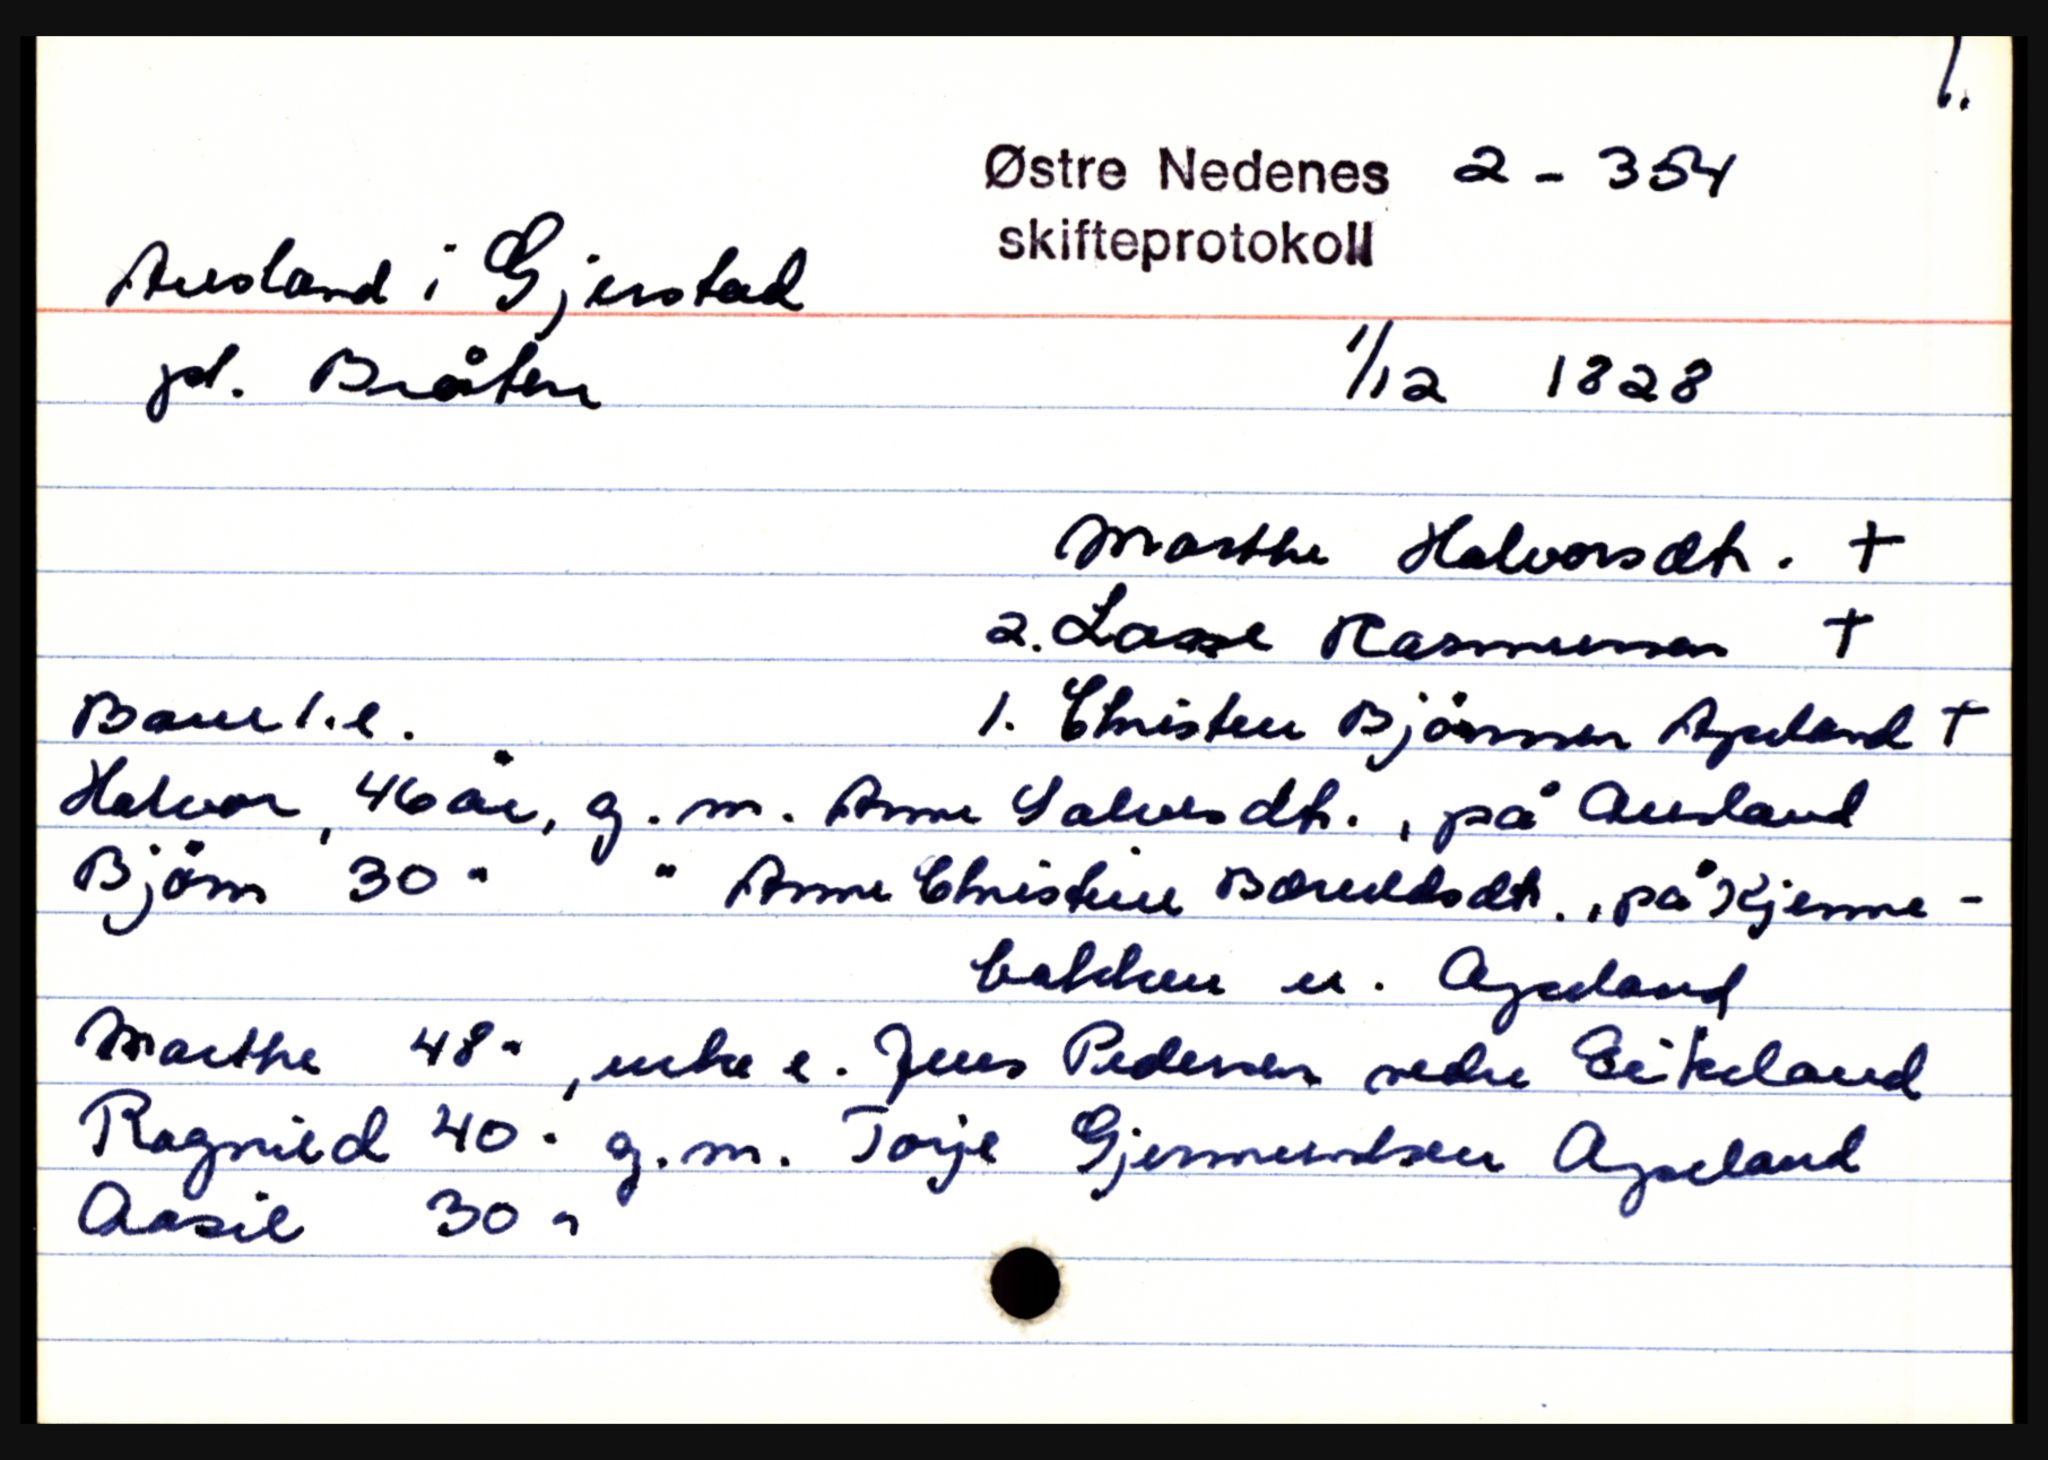 1.
Østre Nedenes 2 - 354
skifteprotokoll
Ausland i Gjerstad
pl. Bråten 1/12 1828
Marthe Halvorsdtr. †
2. Lasse Rasmussen †
Barn 1. e. 1. Christen Björnsen Apeland †
Halvor, 46 år, g. m. Anne Salvesdtr., på Ausland
Björn 30 " " Anne Christine Beruldsdtr., på Kjenne-
bakken u. Apeland
Marthe 48 ", enke e. Jens Pedersen nedre Eikeland
Ragnild 40 " g. m. Torje Gjermundsen Apeland
Aasil 30 "